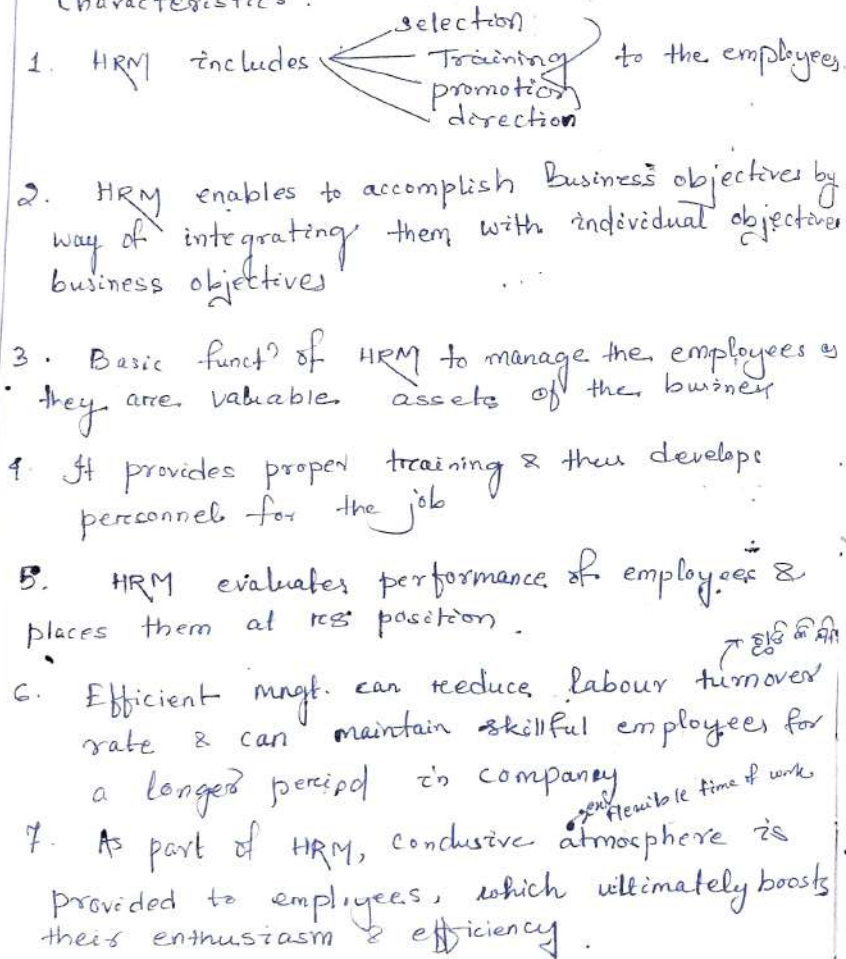 Characteristics :
selection
1. HRM includes Training to the employees.
promotion
direction
2. HRM enables to accomplish Business objectives by
way of integrating them with individual objectives
business objectives
3. Basic funct? of HRM to manage the employees as
they are valuable assets of the business
4. It provides proper training & thus develops
personnel for the job
5. HRM evaluates performance of employees &
places them at position.
6. Efficient mngt. can reeduce labour turnover
rate & can maintain skillful employees for
a longer period in companey
flexible time of work
7. As part of HRM, Condusive atmosphere is
provided to employees, which ultimately boosts
their enthusiasm & efficiency.